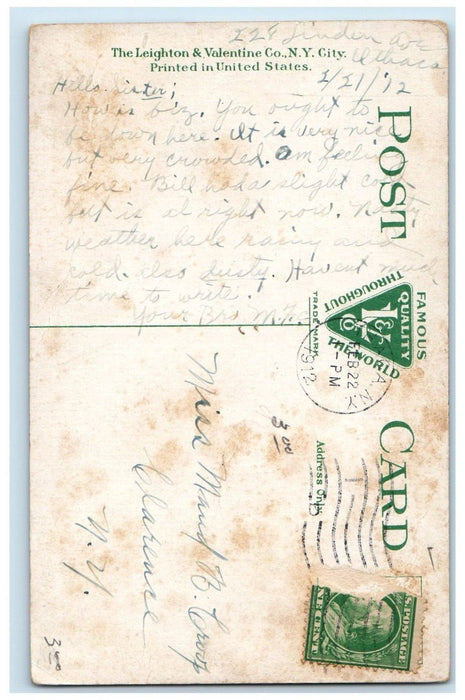 224 Linden Ave
Ithaca
2/21/'12
The Leighton & Valentine Co., N.Y. City.
Printed in United States.
Hello Sister;
How is biz. You ought to
be down here. It is very nice
but very crowded. Am feeling
fine. Bill had a slight cold
but is al right now. Nasty
weather here rainy and
cold. also dusty. Havent much
time to write.
Your Bro.
POST CARD
FAMOUS
QUALITY
L&V
Co
THROUGHOUT
THE WORLD
TRADE MARK
FEB 22
-PM
1912
N.Y.
Address Only
Miss Maud
Clarence
N.Y.
3.00
3.00
POSTAGE
ONE CENT